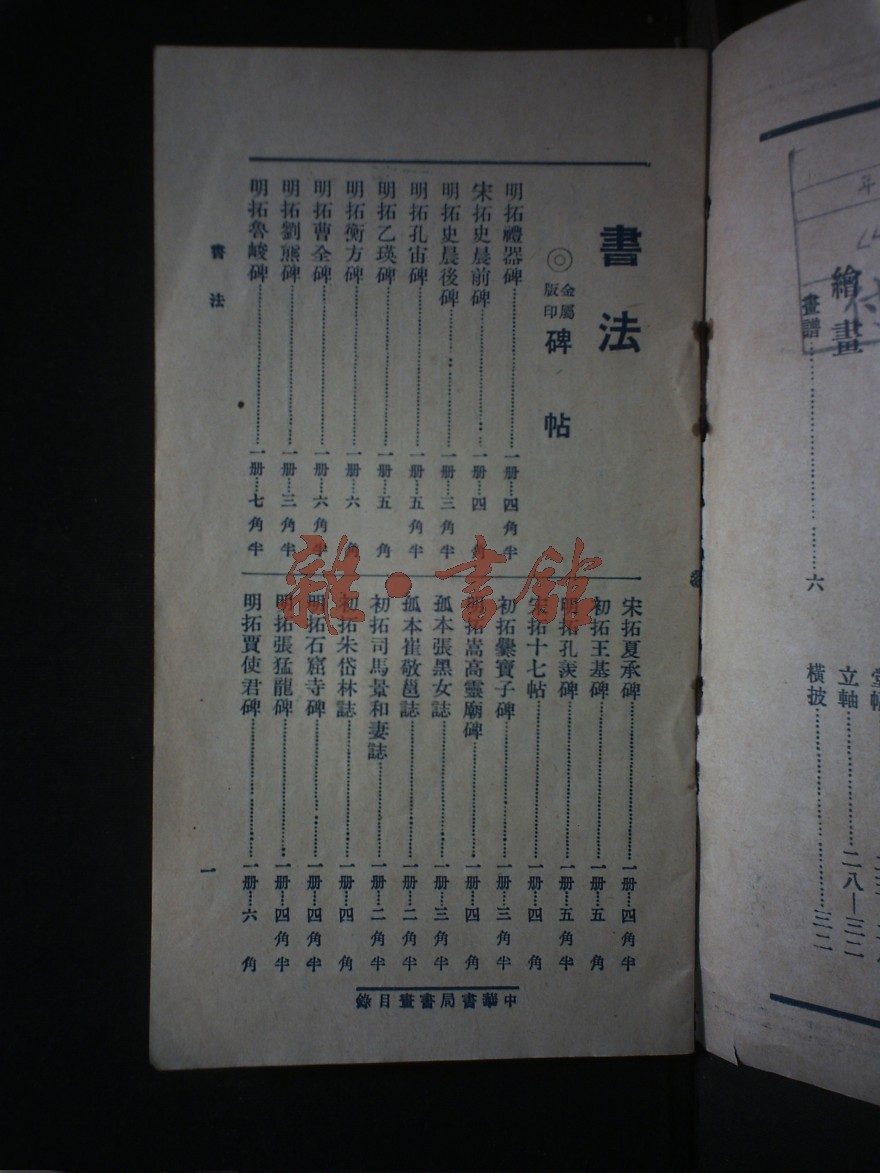 書法
◎金屬版印碑帖
明拓禮器碑……一册……四角半
宋拓史晨前碑……一册……四角
明拓史晨後碑……一册……三角半
明拓孔宙碑……一册……五角半
明拓乙瑛碑……一册……五角
明拓衡方碑……一册……六角
明拓曹全碑……一册……六角半
明拓劉熊碑……一册……三角半
明拓魯峻碑……一册……七角半
宋拓夏承碑……一册……四角半
初拓王基碑……一册……五角
明拓孔羡碑……一册……五角半
宋拓十七帖……一册……四角
初拓爨寶子碑……一册……三角半
明拓嵩高靈廟碑……一册……四角
孤本張黑女誌……一册……三角半
孤本崔敬邕誌……一册……二角半
初拓司馬景和妻誌……一册……二角半
初拓朱岱林誌……一册……四角
明拓石窟寺碑……一册……四角半
明拓張猛龍碑……一册……四角半
明拓賈使君碑……一册……六角
書法
一
中華書局書畫目錄
雜·書館
繪畫
畫譜……六
立軸……二八—三二
橫披……三二
年